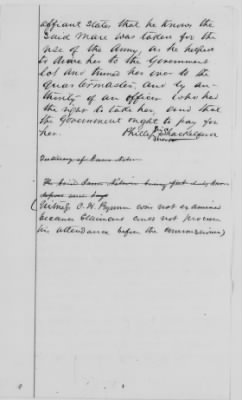 affiant states that he knows the
said Mare was taken for the
use of the Army, as he helped
to drive her to the Government
lot and turned her over to the
quartermaster, and by au-
thority of an officer who had
the right to take her, and that
the Government ought to pay for
her.
Phillip
his
mark
Testimony of
The said James being first duly
says
(Witness C. H. was not examined
because Claimant could not procure
his attendance before the commissioner)